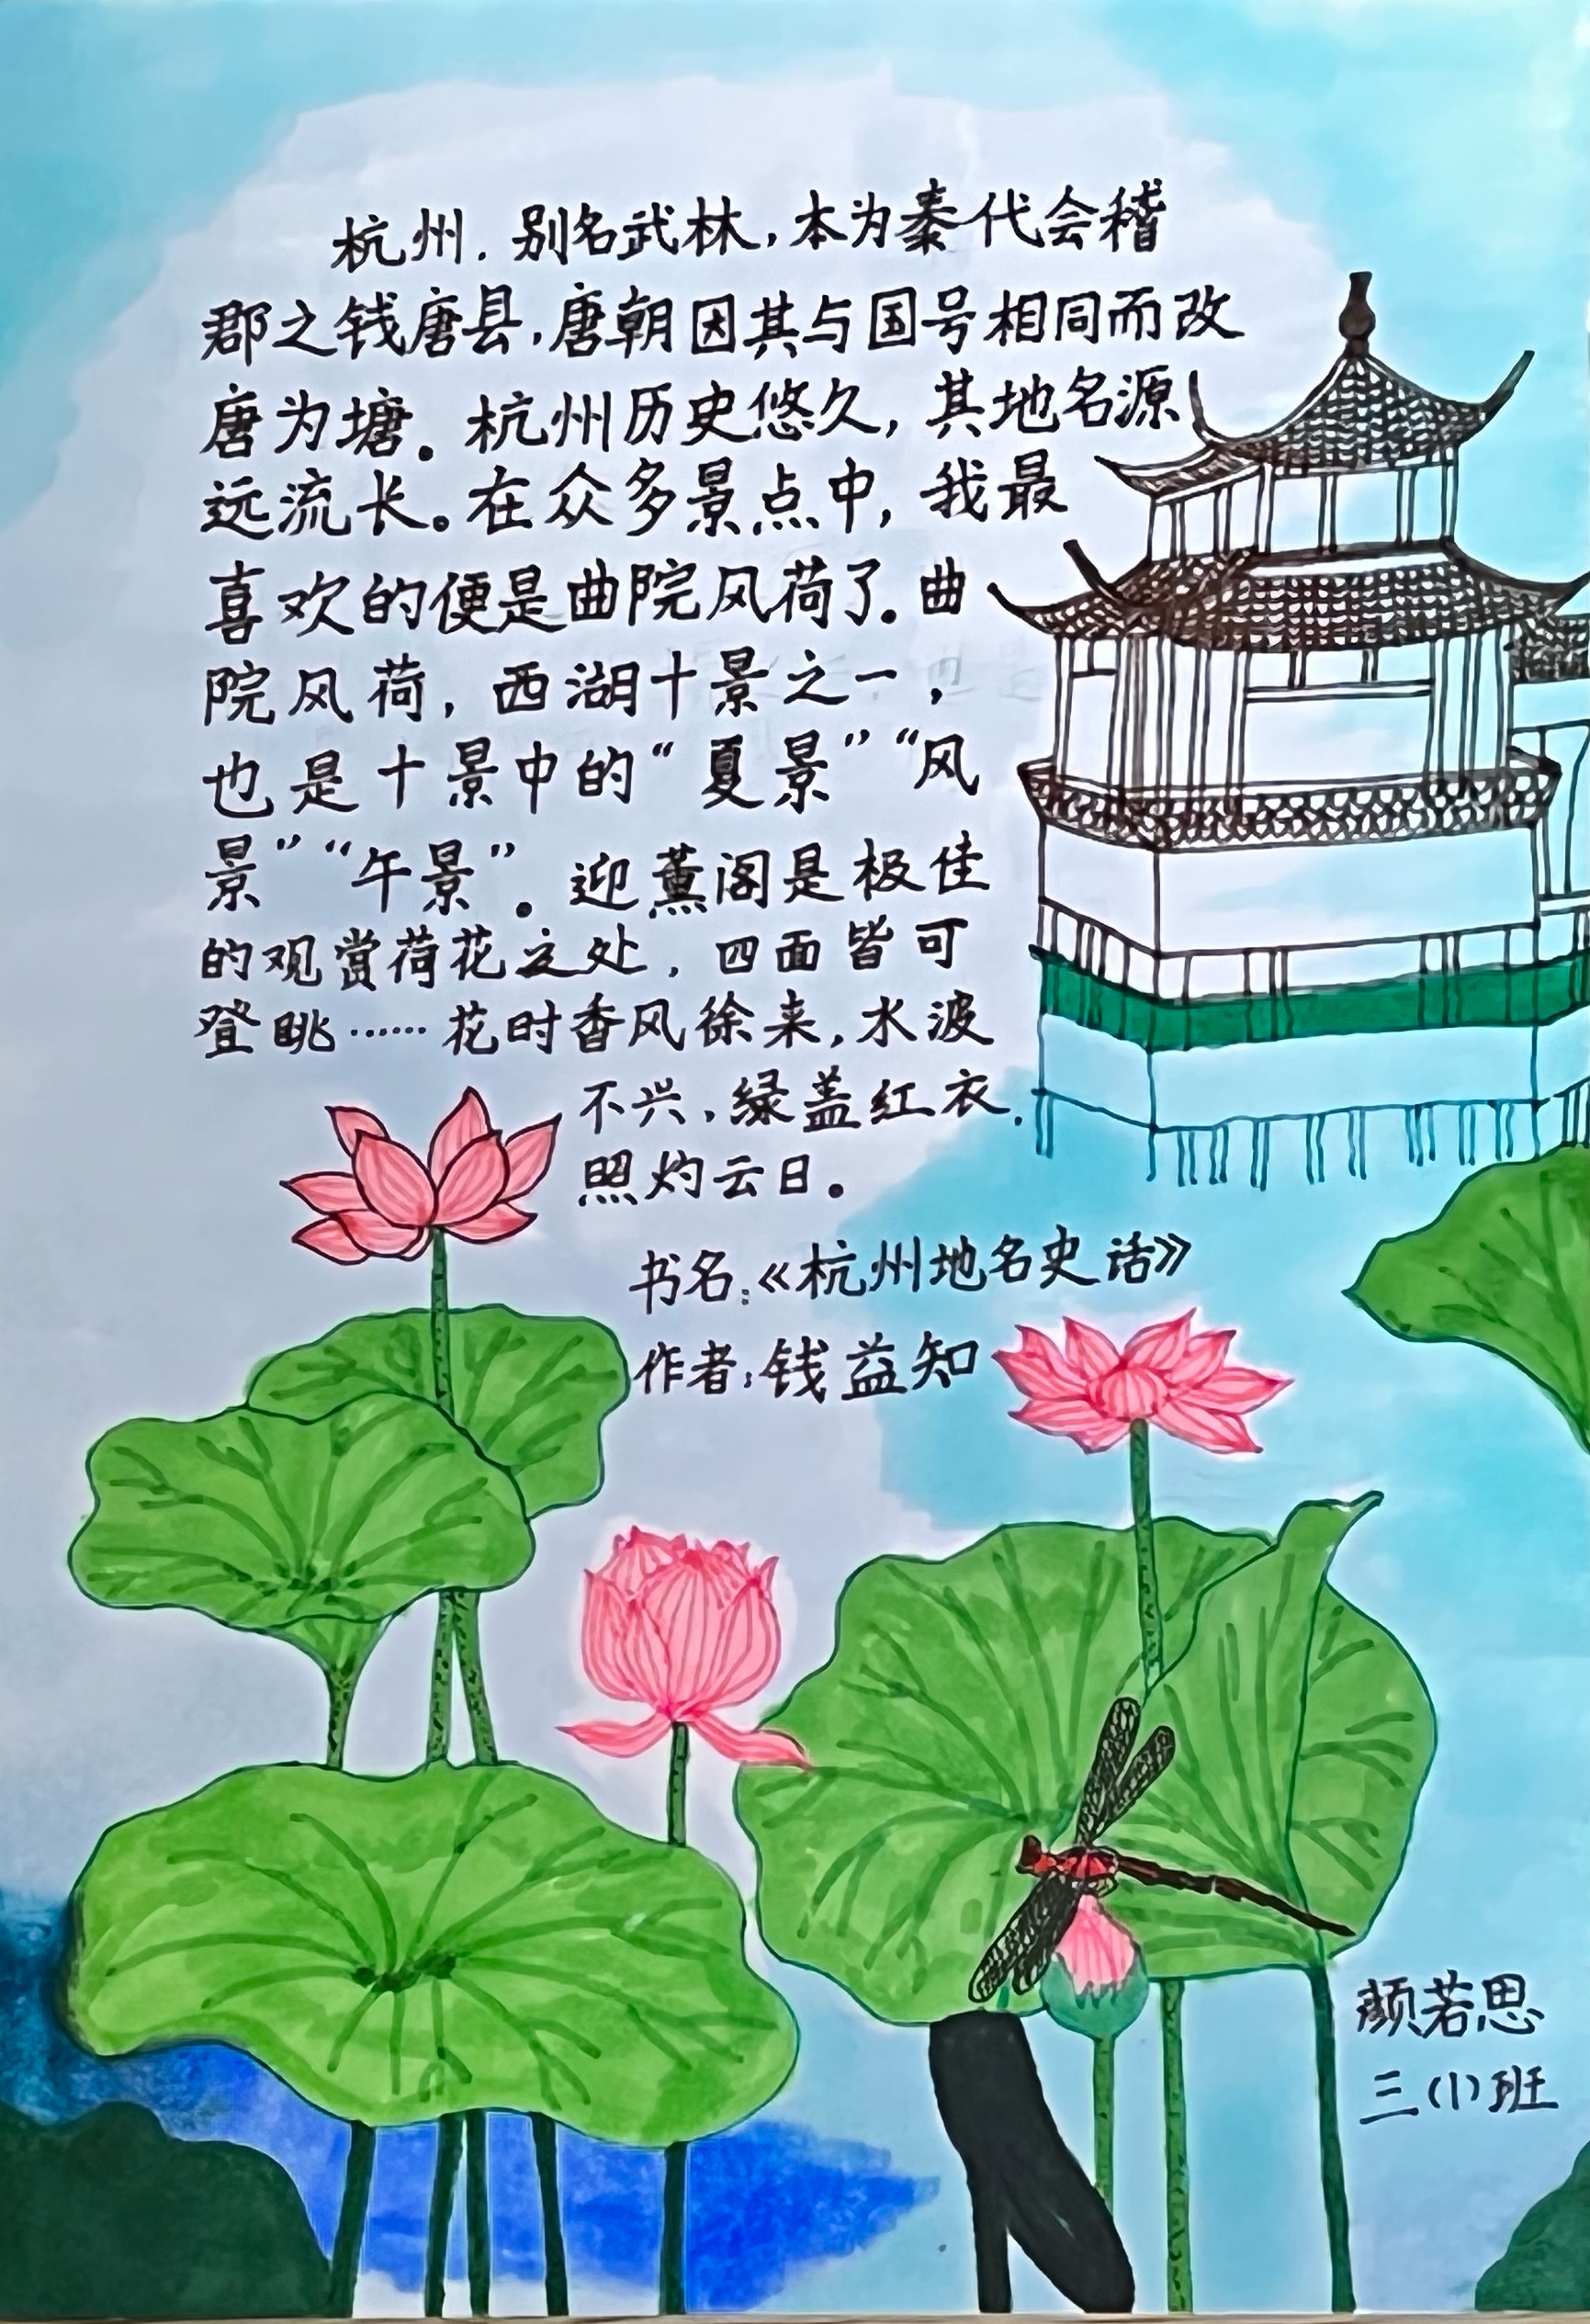 杭州.别名武林,本为秦代会稽
郡之钱唐县,唐朝因其与国号相同而改
唐为塘。杭州历史悠久,其地名源
远流长。在众多景点中,我最
喜欢的便是曲院风荷了。曲
院风荷,西湖十景之一,
也是十景中的“夏景”“风
景”“午景”。迎薰阁是极佳
的观赏荷花之处,四面皆可
登眺……花时香风徐来,水波
不兴,绿盖红衣.
照灼云日。
书名:《杭州地名史话》
作者:钱益知
颜若思
三(1)班